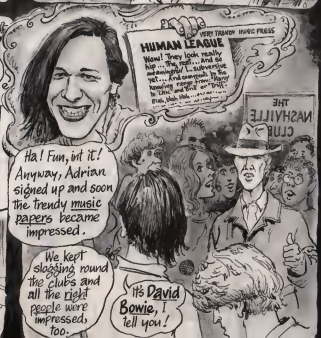 VERY TRENDY MUSIC PRESS
HUMAN LEAGUE
Wow! They look really
hip... The real... and so
meaningful... subversive
yet... And
knowing range from "Harry
the and
Blah, blah, blah
THE
NASHVILLE
CLUB
Ha! Fun, int it!
Anyway, Adrian
signed up and soon
the trendy music
papers became
impressed.
We kept
slogging round
the clubs and
all the right
people were
impressed,
too.
It's David
Bowie, I
tell you!